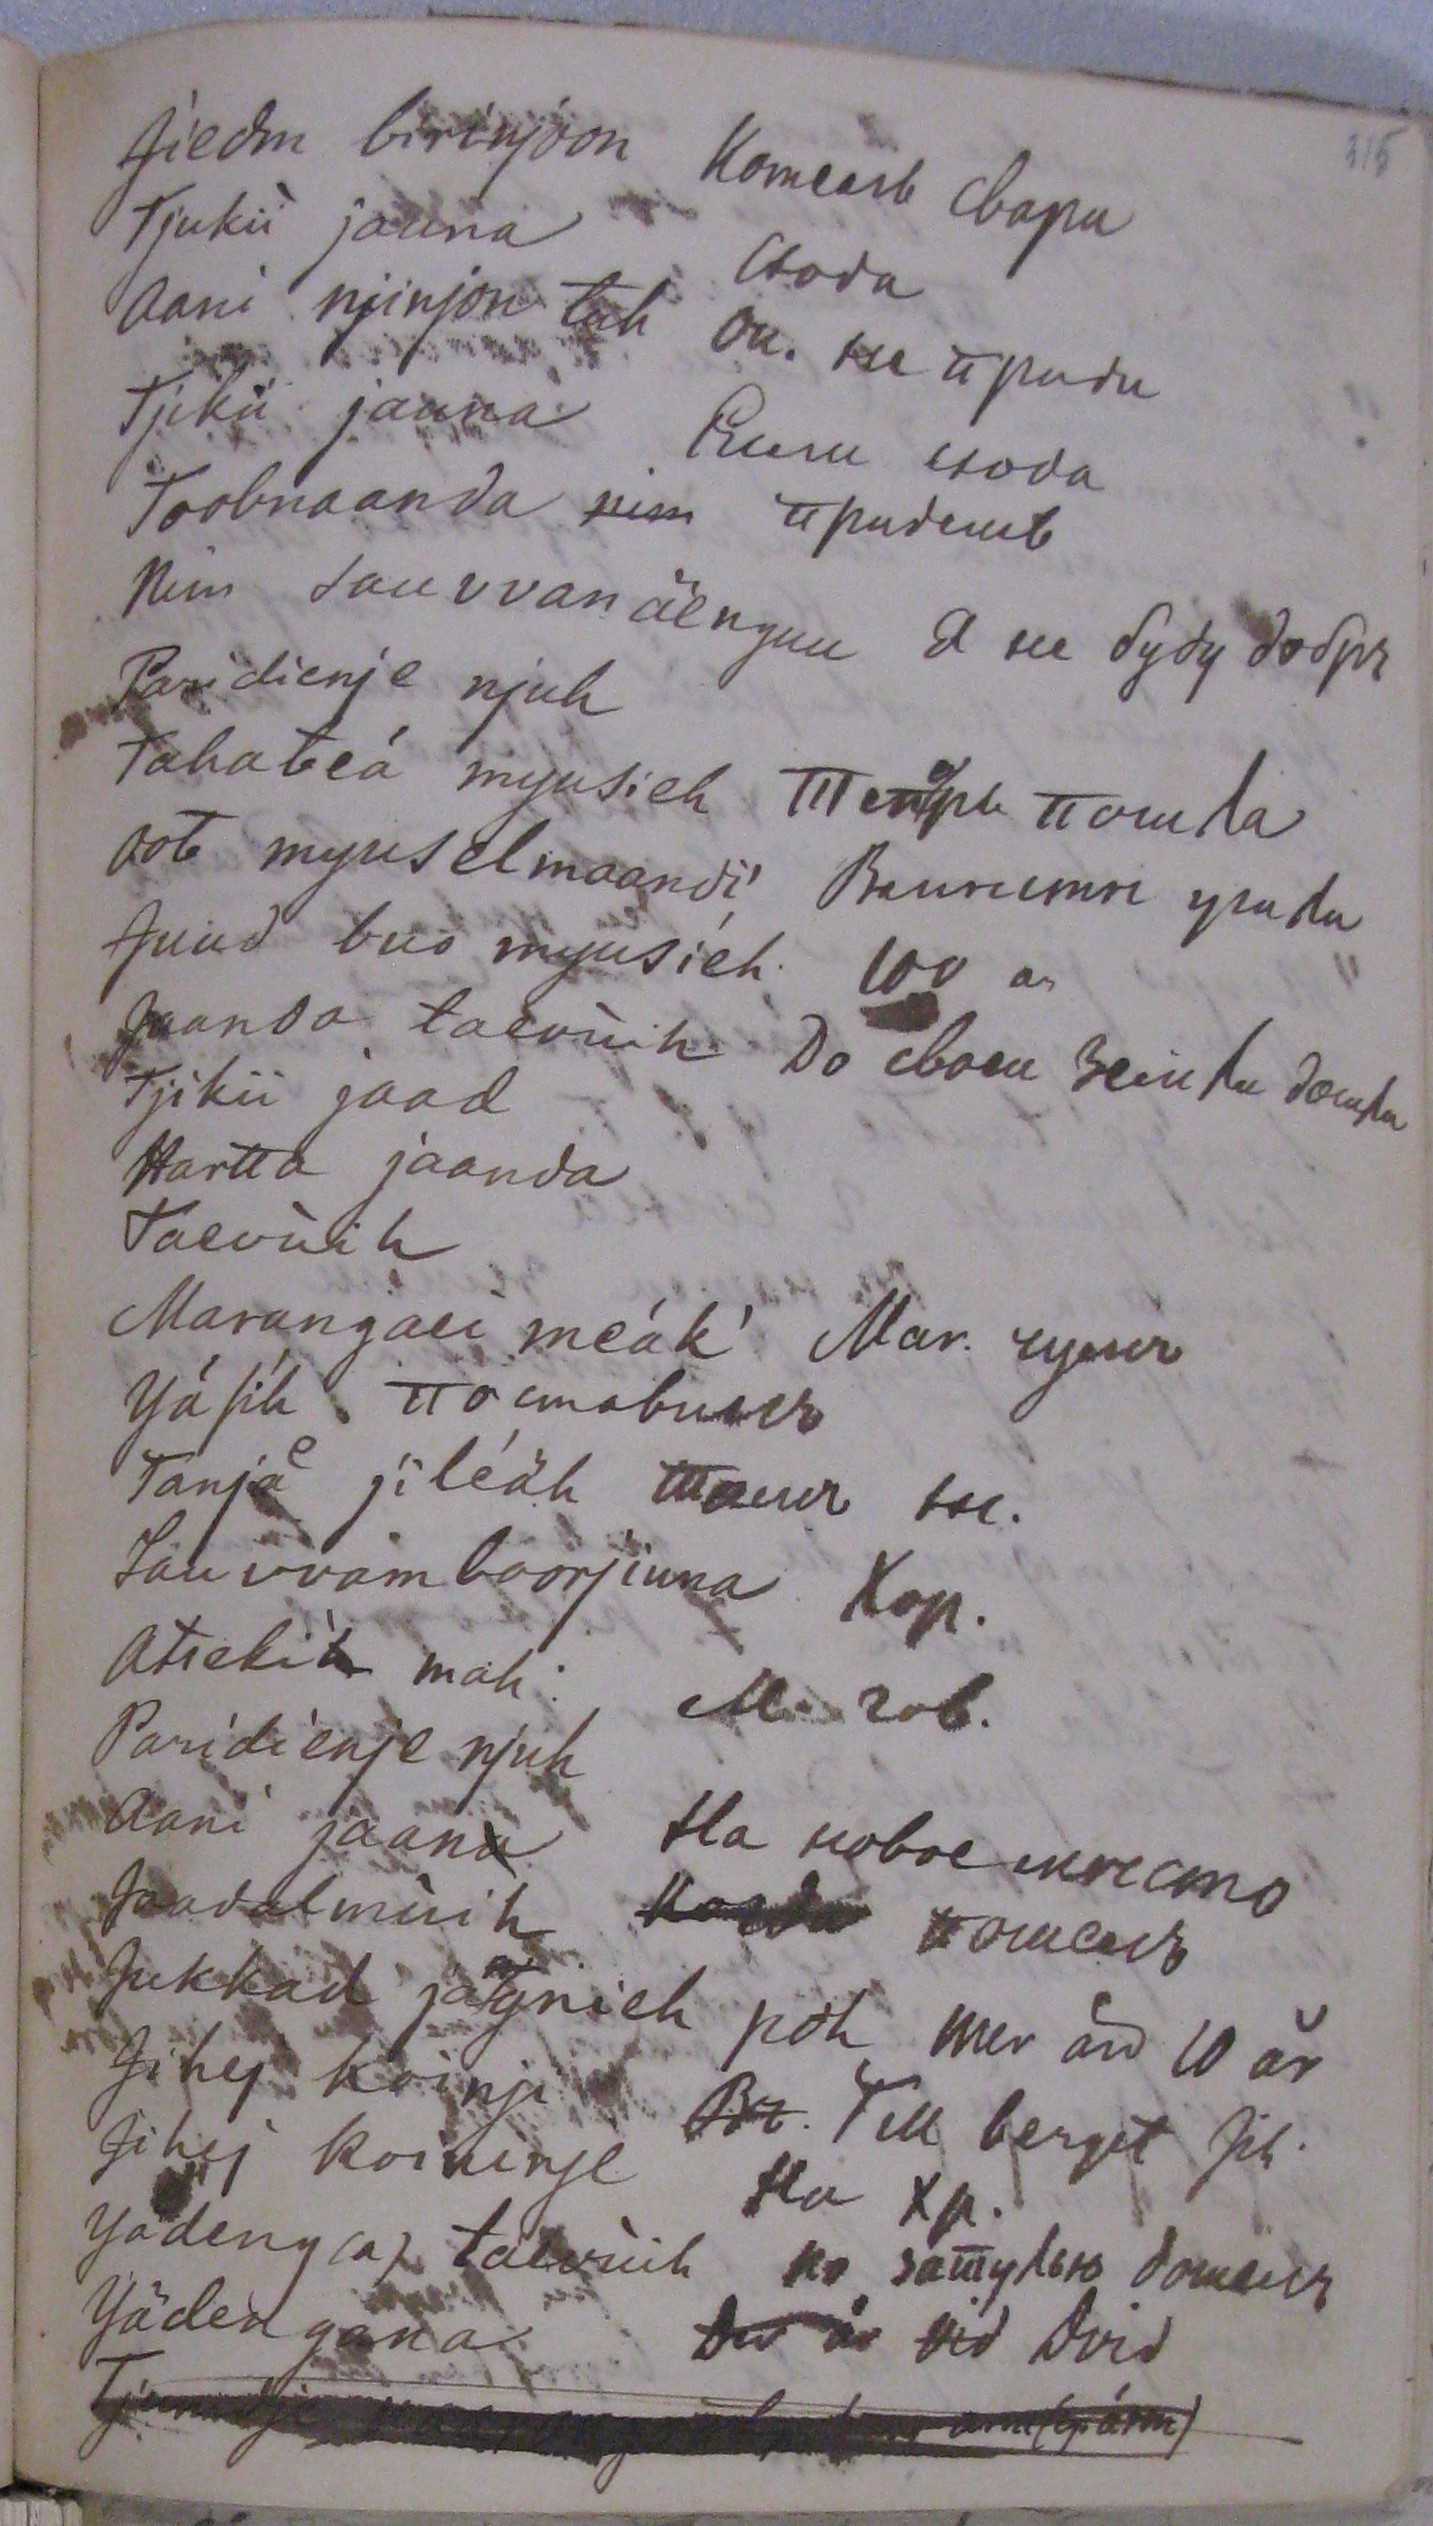 315
Jiedm birinjoon Котелъ свари
Tjukii jauna сюда
Aani njinjon tah Оп. не приди
Tjikii jauna Ежели сюда
Toobnaanda nim придешь
Nim sauvvan äenguu Я не буду добръ
Paridienje njuh
Tahabeá myusieh Теперь пошла
Oob myuselmaandi Вмисти ушли
Juud buo myusieh 100 ar
Jaanda taevuih До своеи земли дошли
Tjikii jaad
Hartta jaanda
Taevuih
Marangaei meák Mar. чумъ
Yásih поставилъ
Tanjae jileäh Тамъ ж.
Sauvvamboorjiuna Хор.
Atsekih mah: М. гов.
Paridienje njuh
Aani jaana На новое место
Jaadalmuih пошелъ
Jukkad jágnieh poh mer än 10 år
Jihej koinji Въ. Till berget Jih.
Jihej koininje На хр.
Yädeng(a) taevuih по затулью дошелъ
Yädengana vid Dvid